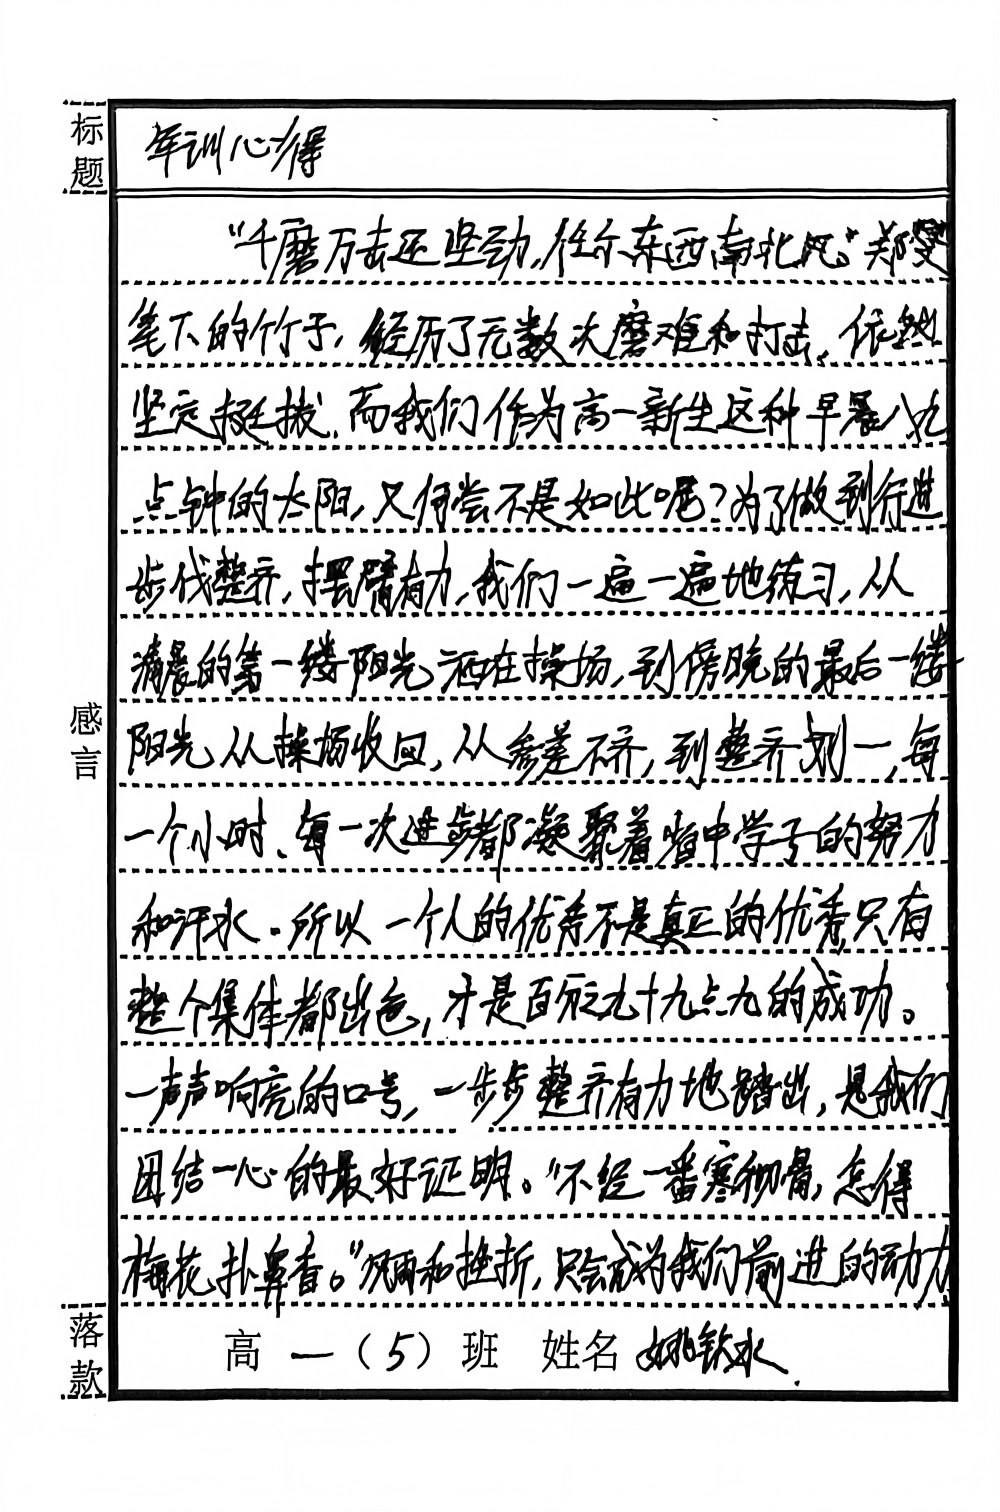 标题
军训心得
“千磨万击还坚劲，任尔东西南北风。”郑燮
笔下的竹子，经历了无数次磨难和打击，依然
坚定挺拔，而我们作为高一新生这种早晨八九
点钟的太阳，又何尝不是如此呢？为了做到行进
步伐整齐，摆臂有力，我们一遍一遍地练习，从
清晨的第一缕阳光洒在操场，到傍晚的最后一缕
阳光从操场收回，从参差不齐，到整齐划一，每
一个小时、每一次进步都凝聚着 中学子的努力
和汗水。所以一个人的优秀不是真正的优秀，只有
整个集体都出色，才是百分之九十九点九的成功。
一声声响亮的口号，一步步整齐有力地踏出，是我们
团结一心的最好证明。“不经一番寒彻骨，怎得
梅花扑鼻香。”风雨和挫折，只会成为我们前进的动力
感言
落款
高一（5）班 姓名 姚钦水